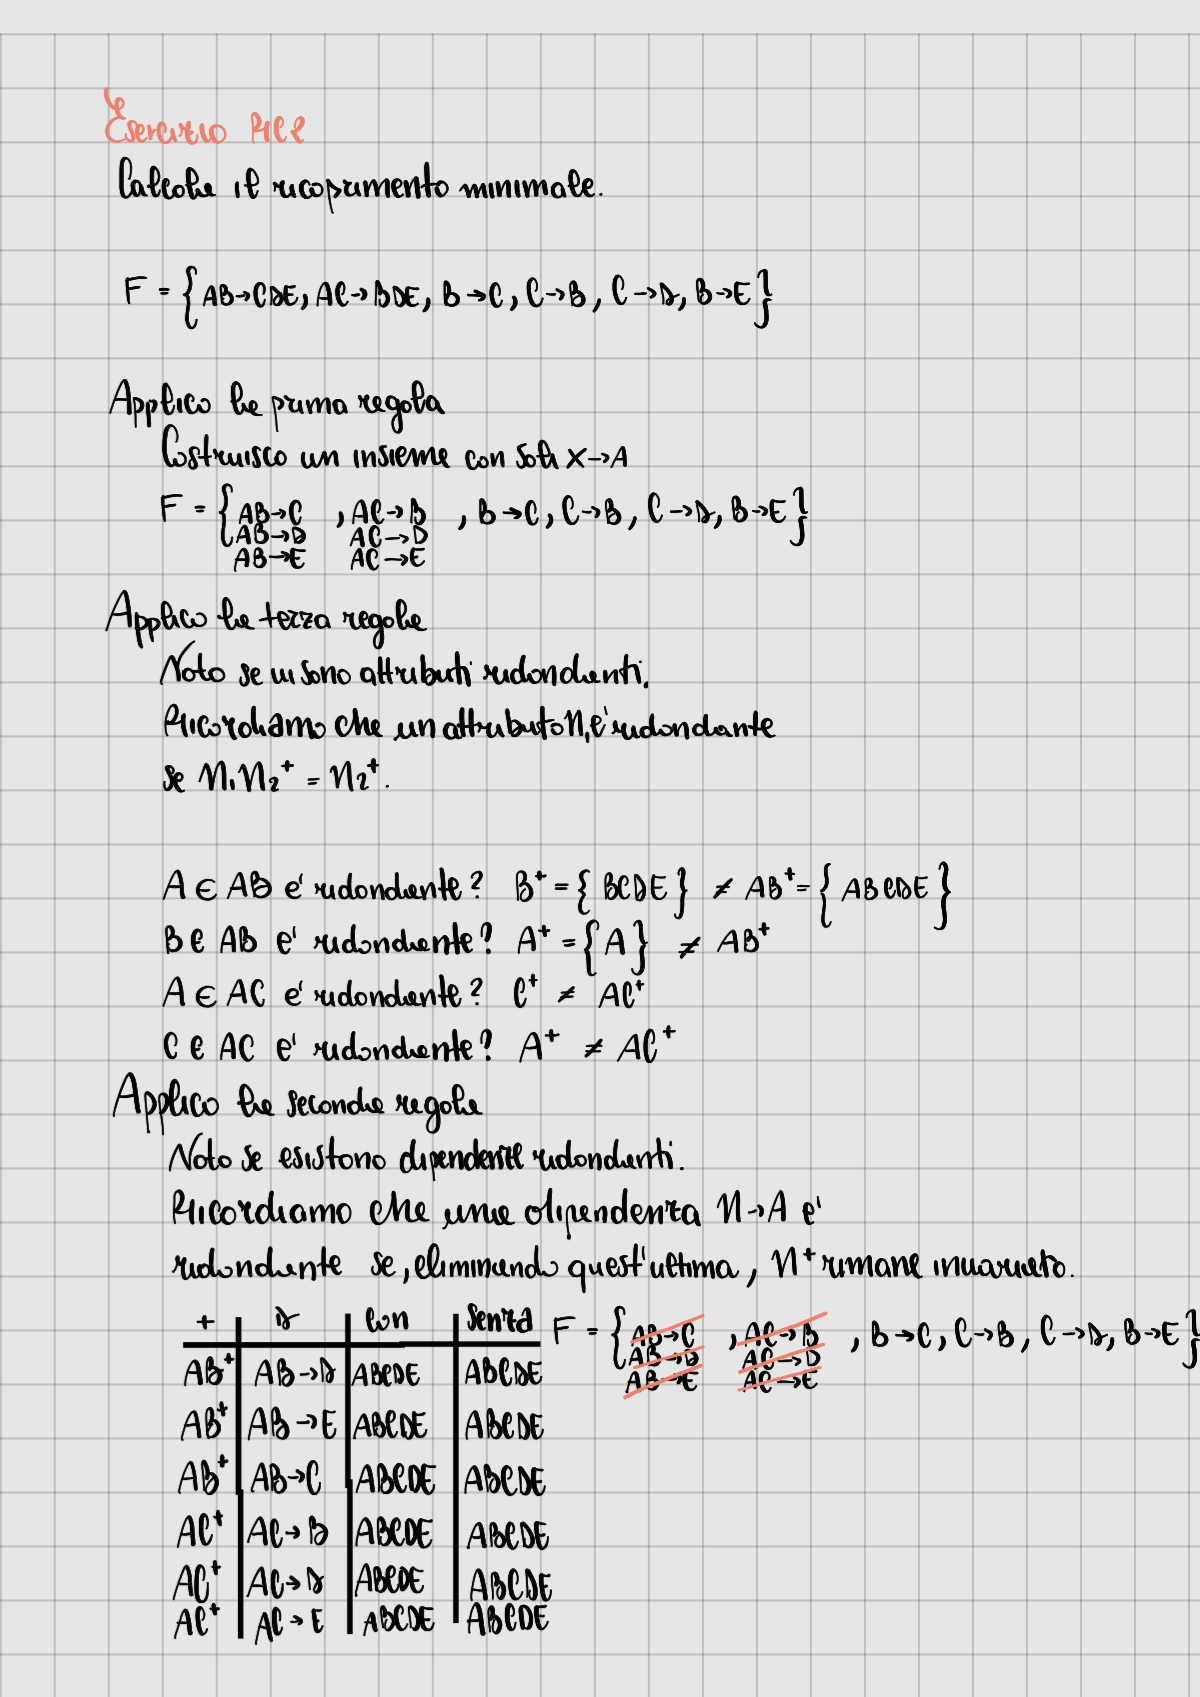 Esercizio RIC2
Calcola il ricoprimento minimale.
F = {AB→CDE, AC→BDE, B→C, C→B, C→D, B→E}
Applico la prima regola
Costruisco un insieme con soli X→A
F = {AB→C , AC→B , B→C, C→B, C→D, B→E}
AB→D AC→D
AB→E AC→E
Applico la terza regola
Noto se vi sono attributi ridondanti.
Ricordiamo che un attributo N₁ è ridondante
se N₁N₂⁺ = N₂⁺.
A ∈ AB è ridondante? B⁺ = {BCDE} ≠ AB⁺ = {ABCDE}
B ∈ AB è ridondante? A⁺ = {A} ≠ AB⁺
A ∈ AC è ridondante? C⁺ ≠ AC⁺
C ∈ AC è ridondante? A⁺ ≠ AC⁺
Applico la seconda regola
Noto se esistono dipendenze ridondanti.
Ricordiamo che una dipendenza N→A è
ridondante se, eliminando quest'ultima, N⁺ rimane invariato.
+ D Con Senza
F = {AB→C , AC→B , B→C, C→B, C→D, B→E}
AB→D AC→D
AB→E AC→E
AB⁺ AB→D ABCDE ABCDE
AB⁺ AB→E ABCDE ABCDE
AB⁺ AB→C ABCDE ABCDE
AC⁺ AC→B ABCDE ABCDE
AC⁺ AC→D ABCDE ABCDE
AC⁺ AC→E ABCDE ABCDE